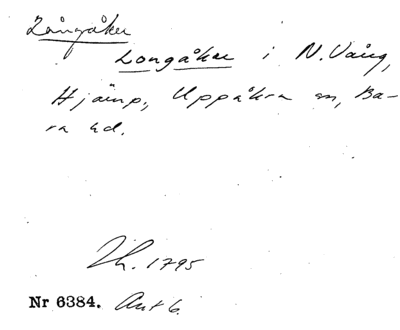 Långåker
Longåker i N. Vång,
Hjärup, Uppåkra sn, Ba-
ra hd.
Lh. 1795
Nr 6384. Akt 6.